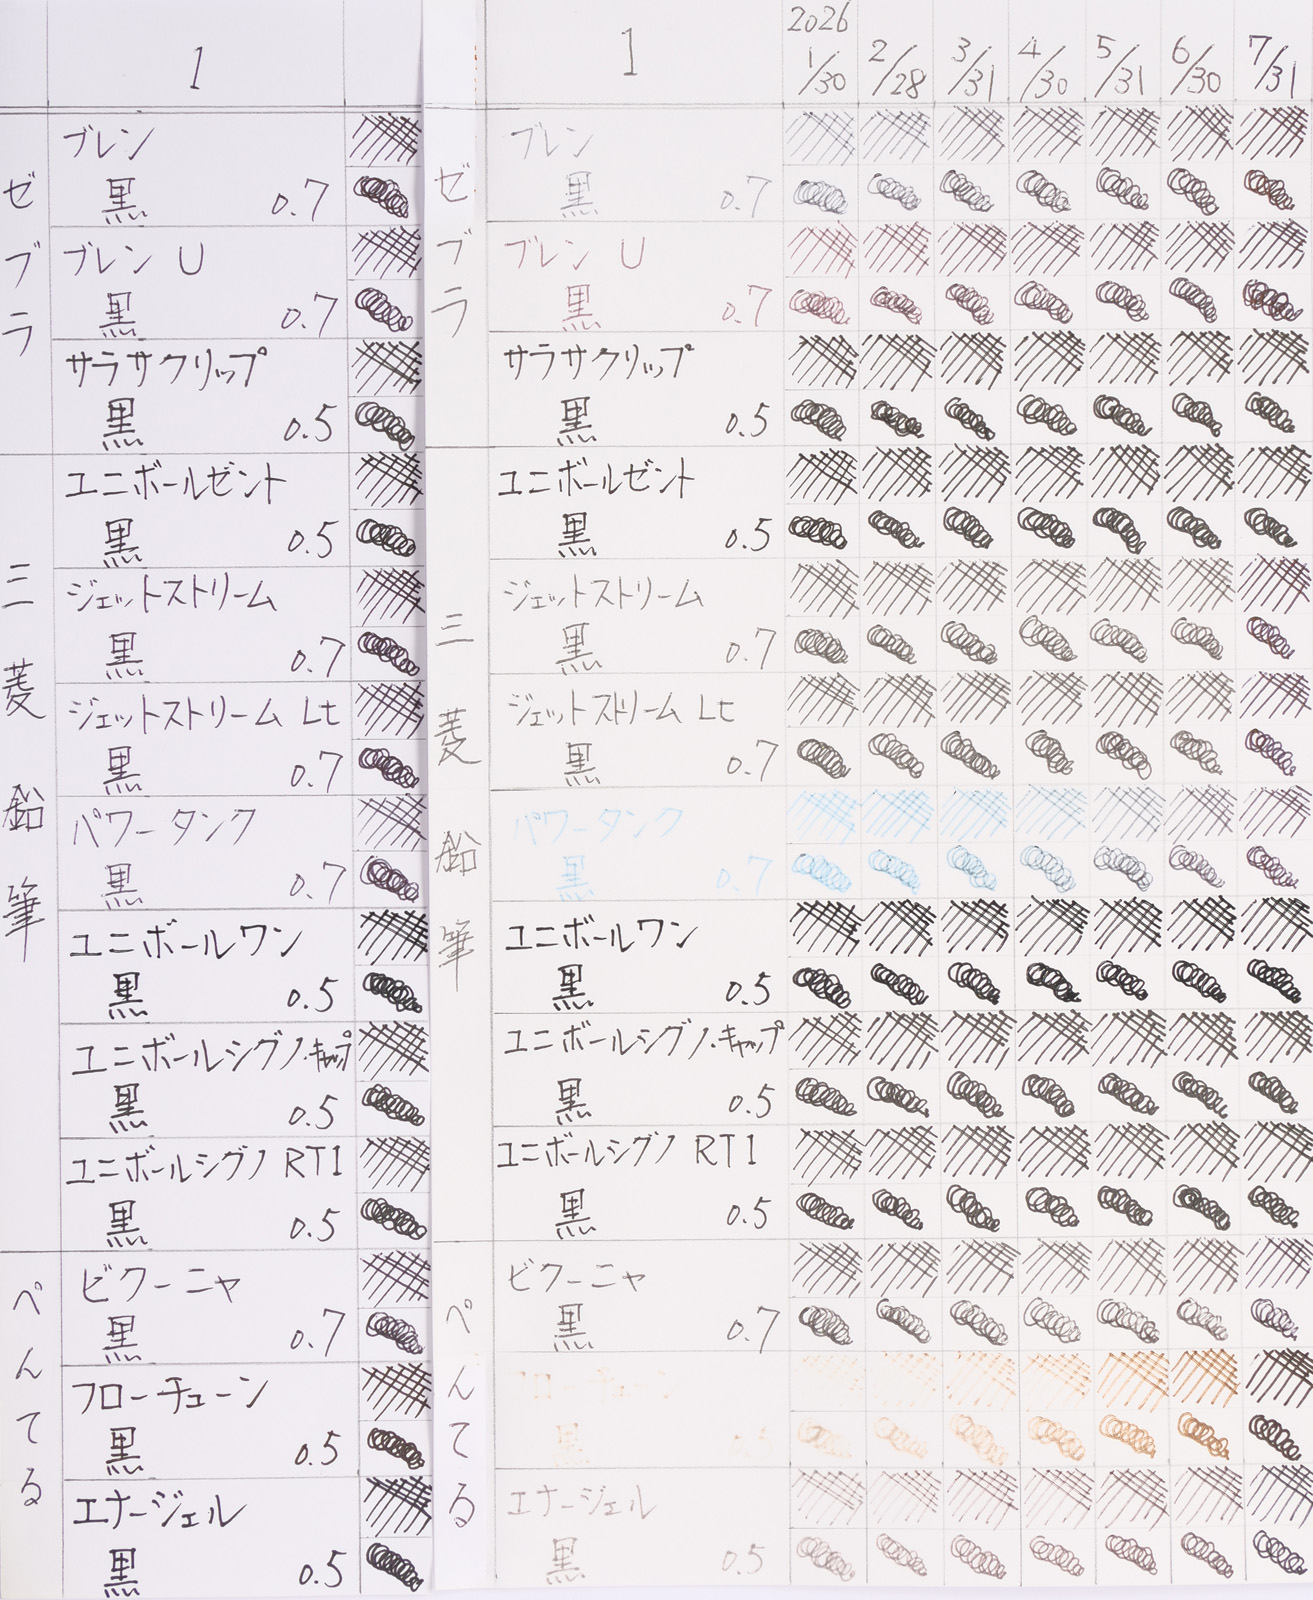 1
ゼブラ
ブレン
黒 0.7
ブレン U
黒 0.7
サラサクリップ
黒 0.5
三菱鉛筆
ユニボールゼント
黒 0.5
ジェットストリーム
黒 0.7
ジェットストリーム Lt
黒 0.7
パワータンク
黒 0.7
ユニボールワン
黒 0.5
ユニボールシグノ・キャップ
黒 0.5
ユニボールシグノ RT1
黒 0.5
ぺんてる
ビクーニャ
黒 0.7
フローチューン
黒 0.5
エナージェル
黒 0.5
1
2026
1/30 2/28 3/31 4/30 5/31 6/30 7/31
ゼブラ
ブレン
黒 0.7
ブレン U
黒 0.7
サラサクリップ
黒 0.5
三菱鉛筆
ユニボールゼント
黒 0.5
ジェットストリーム
黒 0.7
ジェットストリーム Lt
黒 0.7
パワータンク
黒 0.7
ユニボールワン
黒 0.5
ユニボールシグノ・キャップ
黒 0.5
ユニボールシグノ RT1
黒 0.5
ぺんてる
ビクーニャ
黒 0.7
フローチューン
黒 0.5
エナージェル
黒 0.5